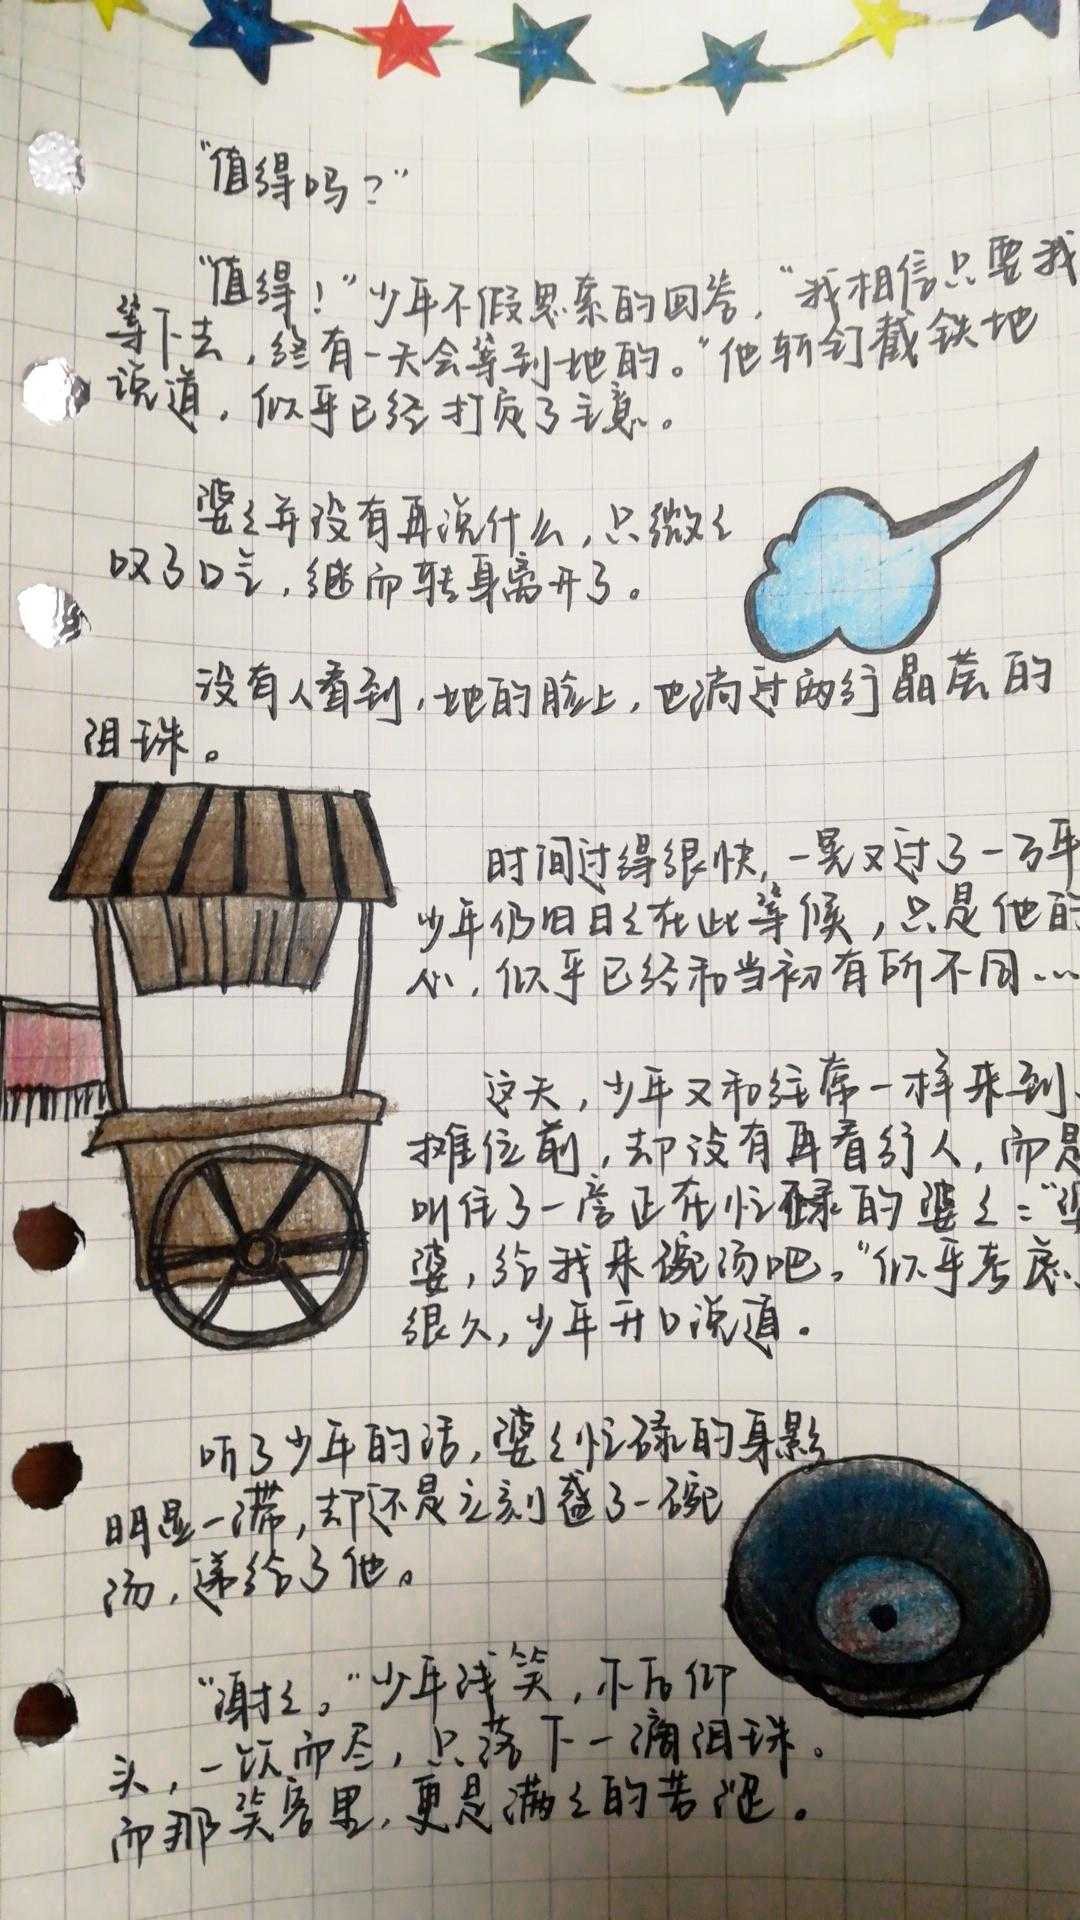 "值得吗?"
"值得!"少年不假思索的回答,"我相信只要我
等下去,终有一天会等到她的。"他斩钉截铁地
说道,似乎已经打定了主意。
婆々并没有再说什么,只微々
叹了口气,继而转身离开了。
没有人看到,她的脸上,也淌过两行晶莹的
泪珠。
时间过得很快,一晃又过了一万年
少年仍旧日々在此等候,只是他的
心,似乎已经和当初有所不同…
这天,少年又和往常一样来到
摊位前,却没有再看行人,而是
叫住了一旁正在忙碌的婆々:"婆
婆,给我来碗汤吧。"似乎考虑
很久,少年开口说道。
听了少年的话,婆々忙碌的身影
明显一滞,却还是立刻盛了一碗
汤,递给了他。
"谢々。"少年浅笑,尔后仰
头,一饮而尽,只落下一滴泪珠。
而那笑容里,更是满々的苦涩。